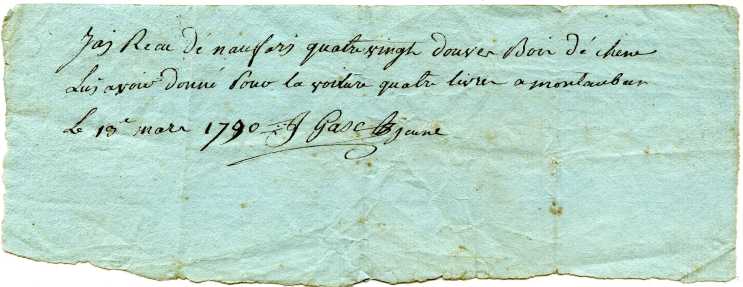 Jai Recu dé naufais quatre vingt douves Boir dé chene
Lui avoir donné Pour la voiture quatre livres a montauban
Le 13e mars 1790 J Gasc jeune